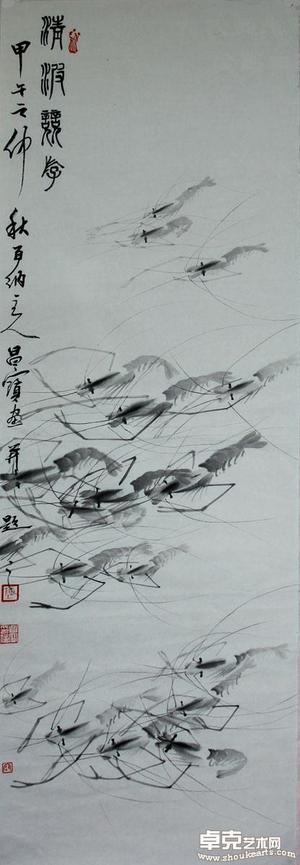 清波競學
甲午之仲
秋百納主人昌寶畫并題之
卓克艺术网
www.shoukearts.com